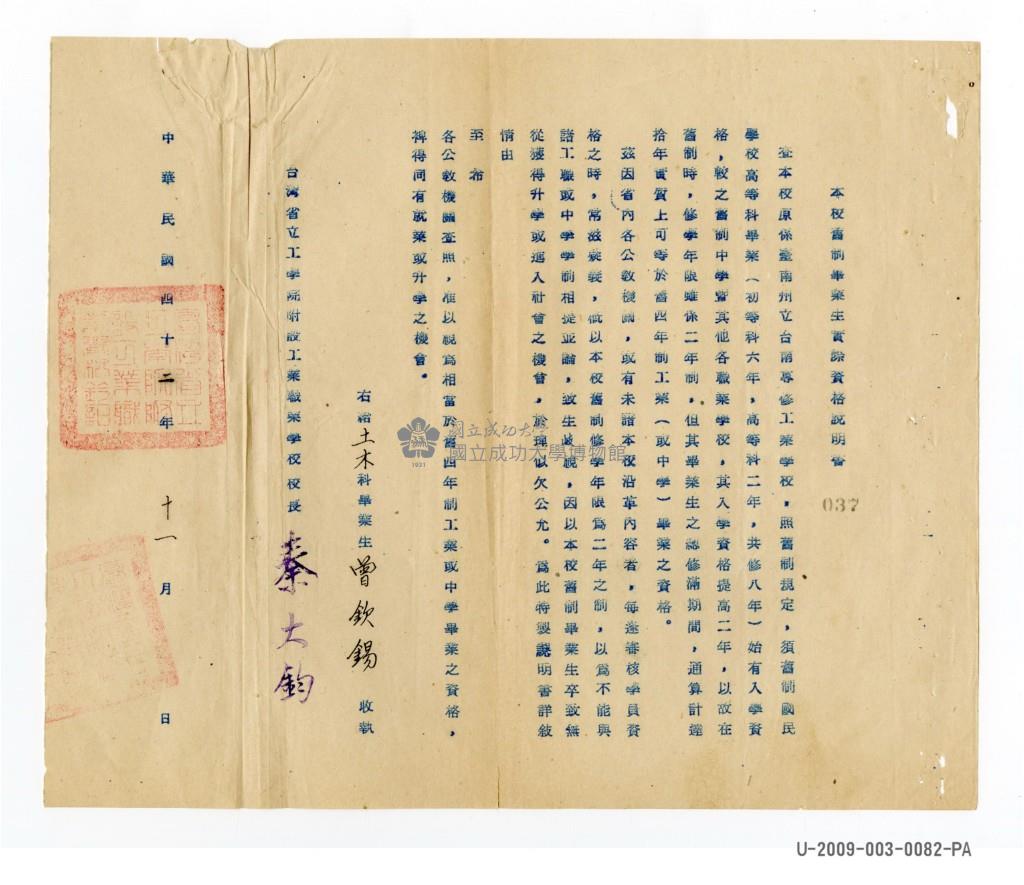 本校舊制畢業生實際資格說明書
037
查本校原係臺南州立台南專修工業學校，照舊制規定，須舊制國民
學校高等科畢業（初等科六年，高等科二年，共修八年）始有入學資
格，較之舊制中學暨其他各職業學校，其入學資格提高二年，以故在
舊制時，修學年限雖係二年制，但其畢業生之認修滿期間，通算計達
拾年實質上可等於舊四年制工業（或中學）畢業之資格。
茲因省內各公教機關，或有未諸本校沿革內容者，每逢審核學員資
格之時，常滋疑義，概以本校舊制修學年限為二年之制，以為不能與
諸工職或中學學制相提並論，致生歧視，因以本校舊制畢業生卒致無
從獲得升學或進入社會之機會，於理似欠公允。爲此特製說明書詳敘
情由
至希
各公教機關查照，准以視為相當於舊四年制工業或中學畢業之資格，
裨得同有就業或升學之機會。
右給土木科畢業生曾欽錫 收執
台灣省立工學院附設工業職業學校校長 秦大鈞
中華民國四十二年 十一月 日
國立成功大學
國立成功大學博物館
1931
U-2009-003-0082-PA